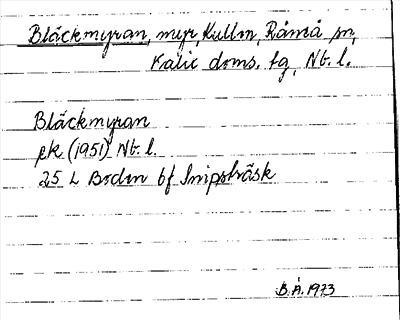 Bläckmyran, myr, Kullen, Råneå sn,
Kalix doms. tg, Nb. l.
Bläckmyran
ek (1951) Nb. l.
25 L Boden bf Snipträsk
B.Å. 1973